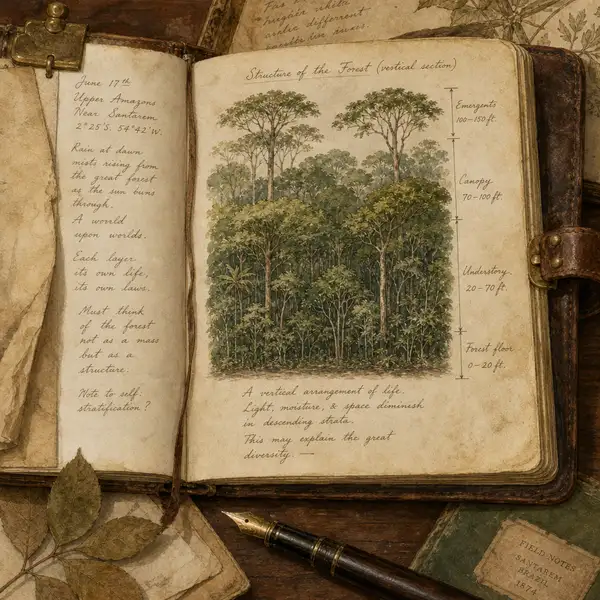 Far
higher
June 17th
Upper Amazons
Near Santarem
2°25'S. 54°42'W.
Rain at dawn
mists rising from
the great forest
as the sun buns
through.
A world
upon worlds.
Each layer
its own life,
its own laws.
Must think
of the forest
not as a mass
but as a
structure.
Note to self:
stratification?
Structure of the Forest (vertical section)
Emergents
100–150 ft.
Canopy
70–100 ft.
Understory
20–70 ft.
Forest floor
0–20 ft.
A vertical arrangement of life.
Light, moisture, & space diminish
in descending strata.
This may explain the great
diversity. —
FIELD NOTES
SANTAREM
BRAZIL
1874